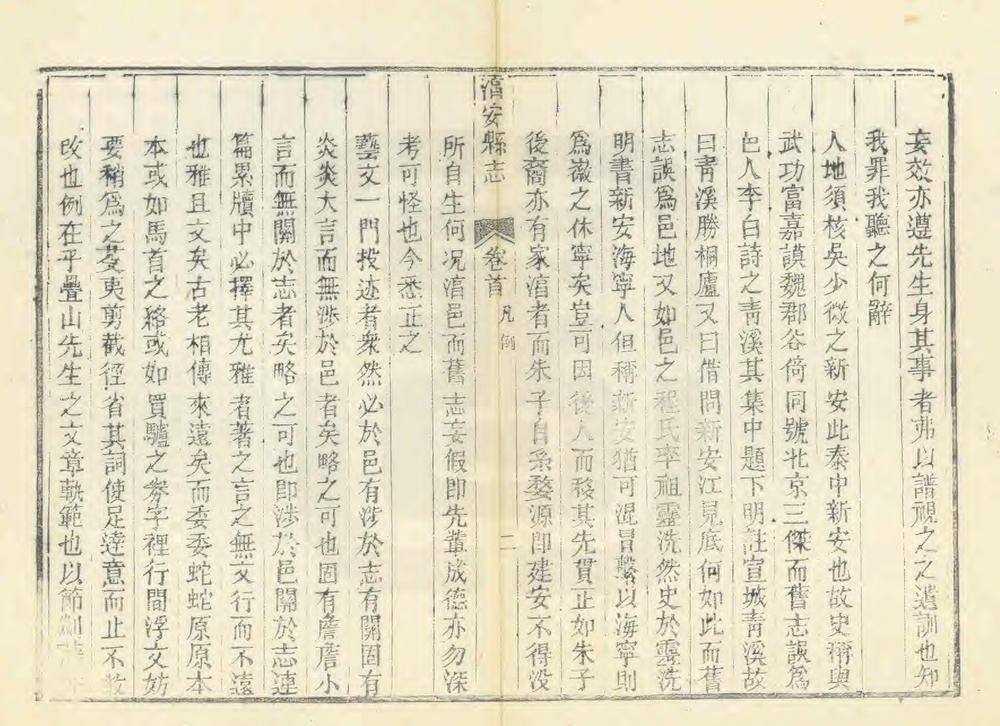 妄效亦遵先生身其事者弗以譜視之之遺訓也知
我罪我聽之何辭
人地須核吳少微之新安此泰中新安也故史稱與
武功富嘉謨魏郡谷倚同號北京三傑而舊志誤爲
邑人李白詩之青溪其集中題下明註宣城青溪故
曰青溪勝桐廬又曰借問新安江見底何如此而舊
志誤爲邑地又如邑之程氏率祖靈洗然史於靈洗
明書新安海寧人但稱新安猶可混冒繫以海寧則
爲徽之休寧矣豈可因後人而移其先貫正如朱子
後裔亦有家淯者而朱子自系婺源即建安不得没
淯安縣志 卷首 凡例 二
所自生何况淯邑而舊志妄假即先輩成德亦勿深
考可怪也今悉正之
藝文一門投迹者衆然必於邑有涉於志有關固有
炎炎大言而無涉於邑者矣略之可也固有詹詹小
言而無關於志者矣略之可也即涉於邑關於志連
篇累牘中必擇其尤雅者著之言之無文行而不遠
也雅且文矣古老相傳來遠矣而委委蛇蛇原原本
本或如馬首之絡或如買驢之券字裡行間浮文妨
要稍爲之芟夷剪截徑省其詞使足達意而止不敢
改也例在乎疊山先生之文章軌範也以節